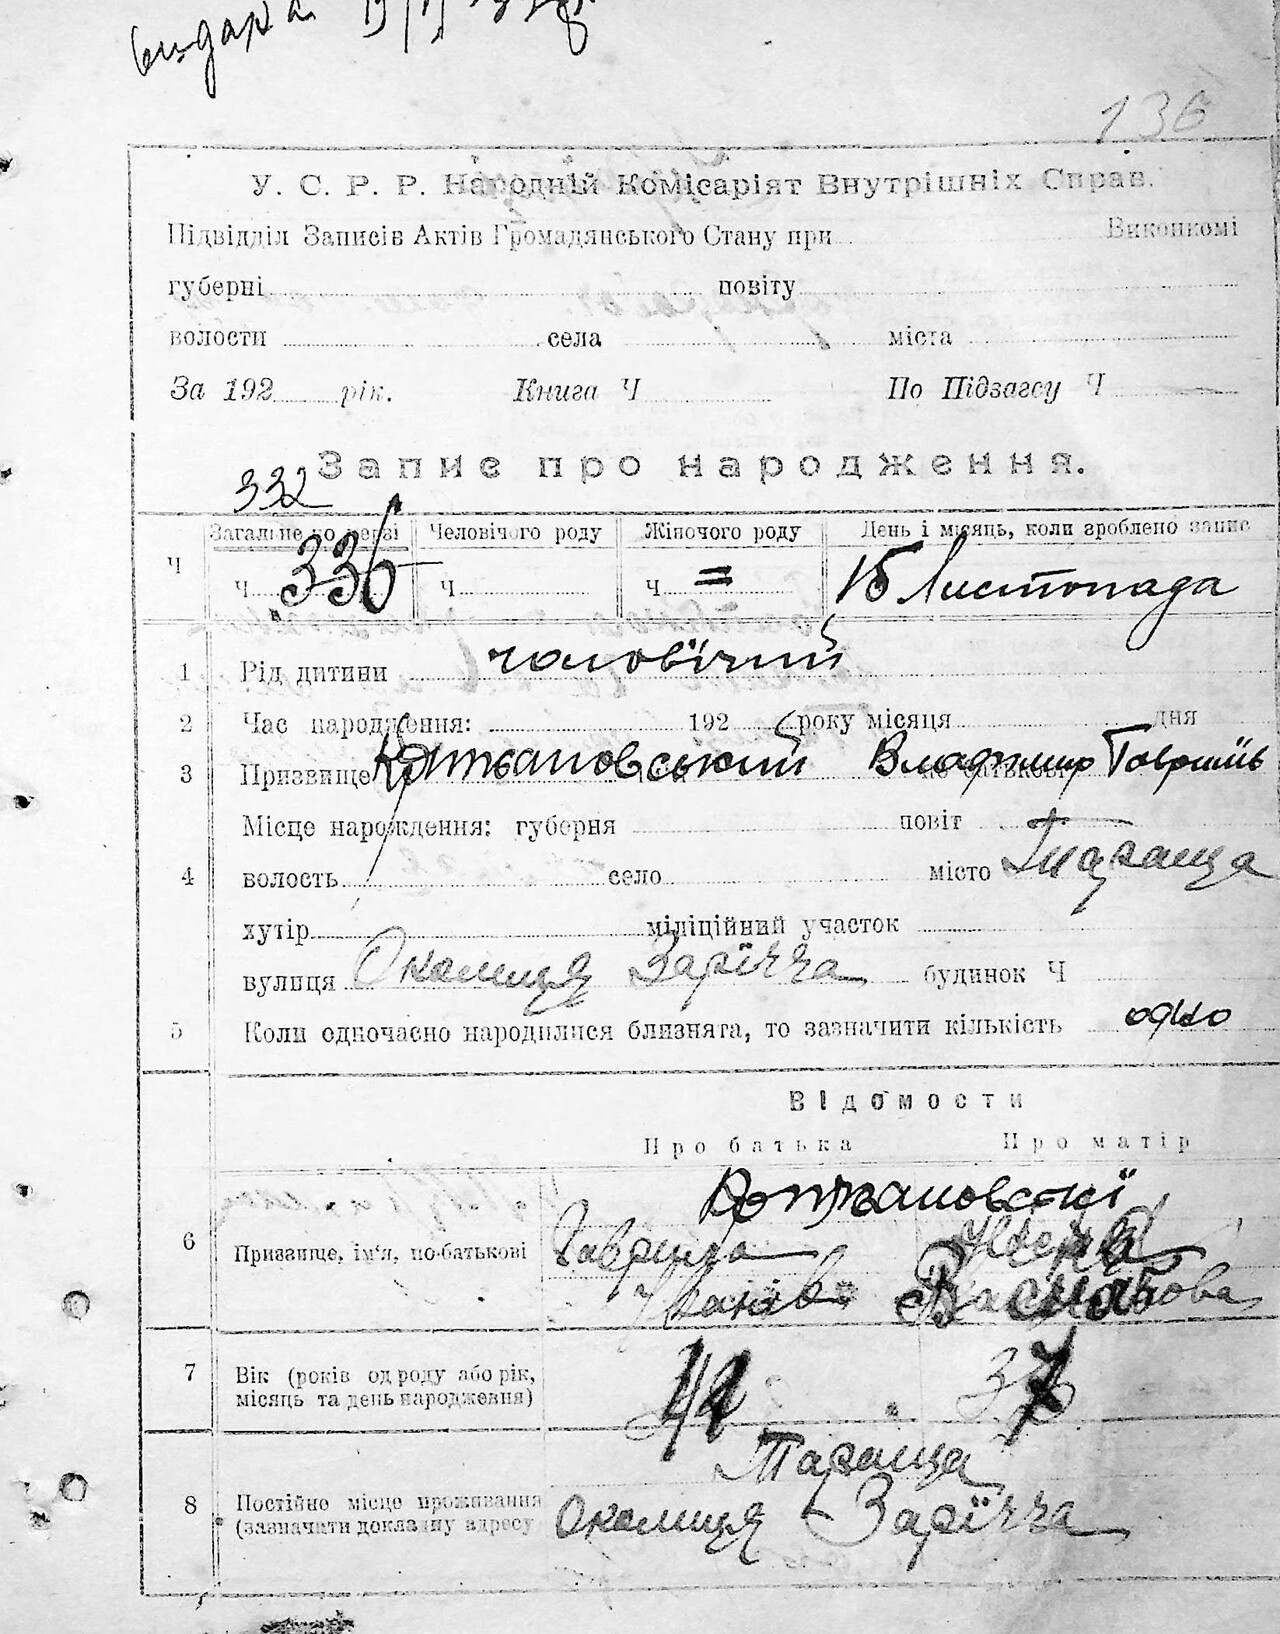 видара
136
У. С. Р. Р. Народній Комісаріят Внутрішніх Справ.
Підвідділ Записів Актів Громадянського Стану при Виконкомі
губерні повіту
волости села міста
За 192 рік. Книга Ч По Підзагсу Ч
Запис про народження.
332
Загальне по черзі Человічого роду Жіночого роду День і місяць, коли зроблено запис
Ч Ч 336 Ч Ч = 15 Листопада
1 Рід дитини чоловічий
2 Час народження: 192 року місяця дня
3 Призвище Владимир Гаврилів
Місце нарождення: губерня повіт
4 волость село місто Тараща
хутір міліційний участок
вулиця Околиця Зарічча будинок Ч
5 Коли одночасно народилися близнята, то зазначити кількість одно
Відомости
Про батька Про матір
6 Призвище, ім'я, по-батькові Гаврило
7 Вік (років од роду або рік, місяць та день народження) 37
Тараща
8 Постійне місце проживання
(зазначати докладну адресу Околиця Зарічча